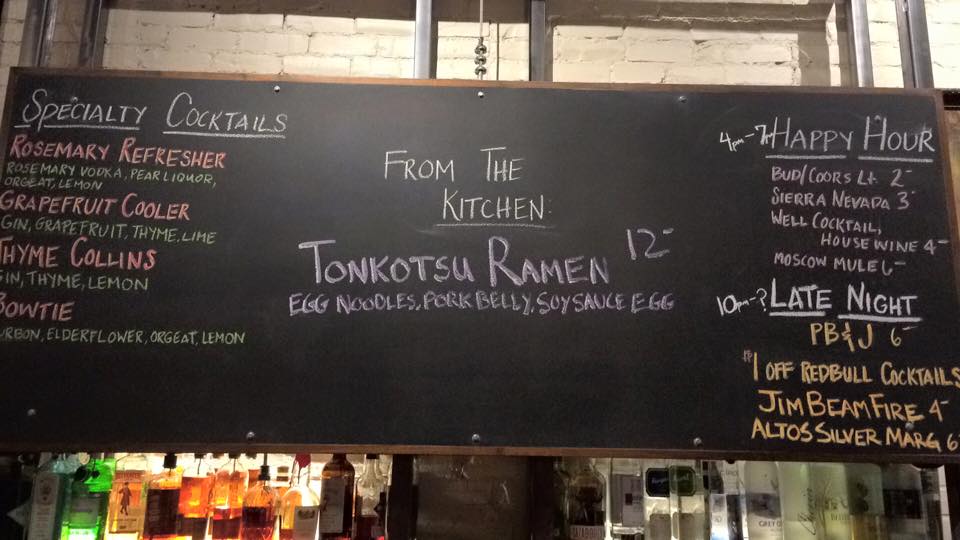 SPECIALTY COCKTAILS
ROSEMARY REFRESHER
ROSEMARY VODKA, PEAR LIQUOR,
ORGEAT, LEMON
GRAPEFRUIT COOLER
GIN, GRAPEFRUIT, THYME, LIME
THYME COLLINS
GIN, THYME, LEMON
BOWTIE
RBON, ELDERFLOWER, ORGEAT, LEMON
FROM THE
KITCHEN:
TONKOTSU RAMEN 12-
EGG NOODLES, PORK BELLY, SOY SAUCE EGG
4pm-7pm HAPPY HOUR
BUD/COORS Lt 2-
SIERRA NEVADA 3-
WELL COCKTAIL,
HOUSE WINE 4-
MOSCOW MULE 6-
10pm-? LATE NIGHT
PB&J 6-
$1 OFF REDBULL COCKTAILS
JIM BEAM FIRE 4-
ALTOS SILVER MARG 6-
GREY